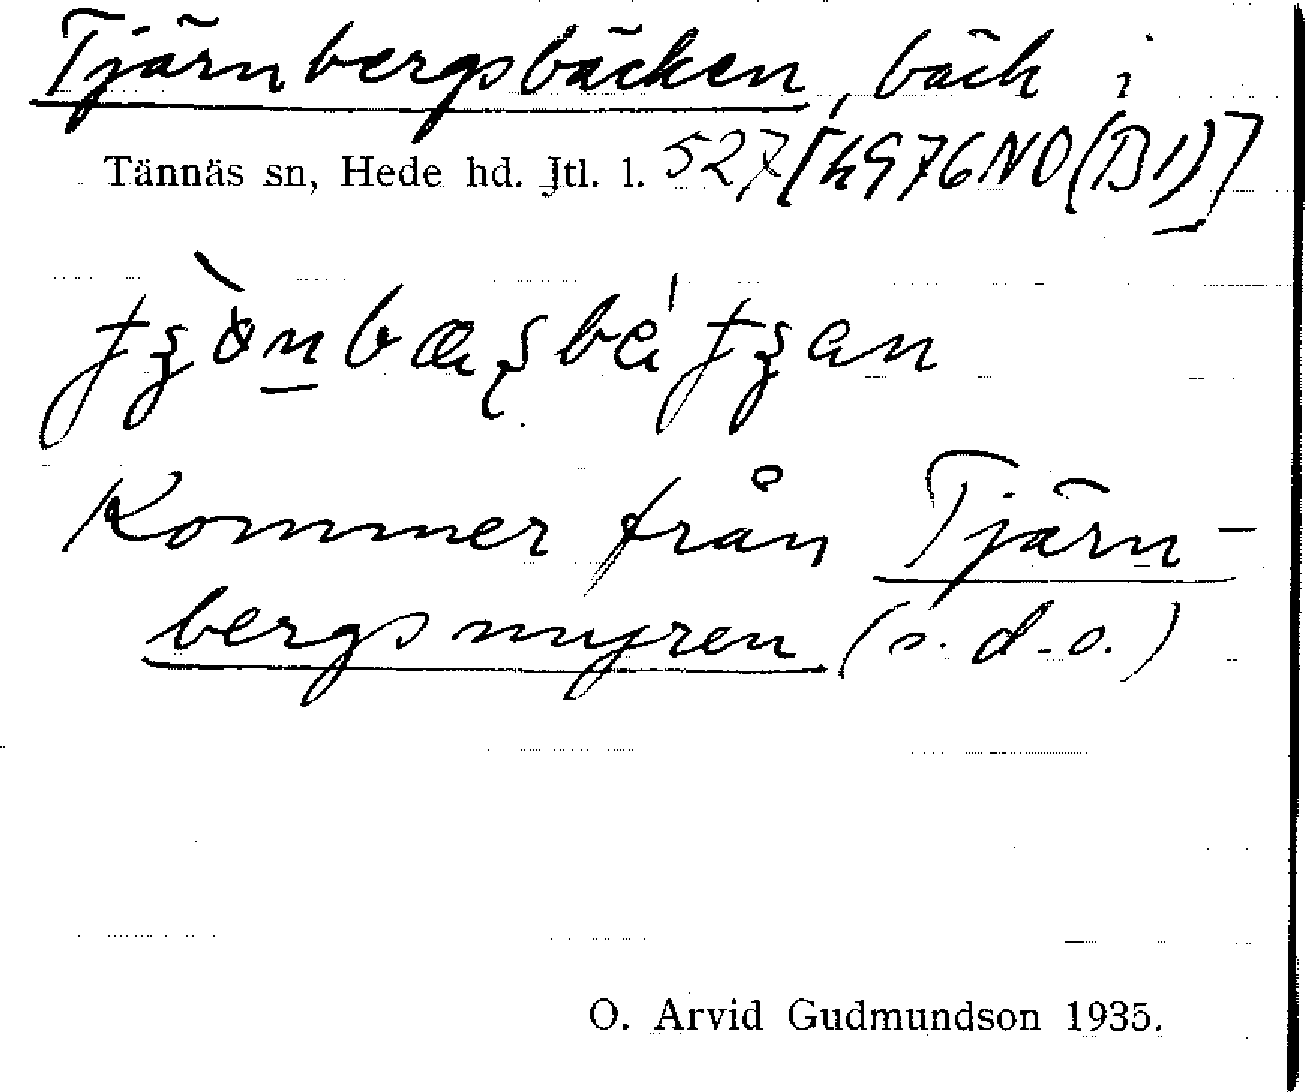 Tjärnbergsbäcken, bäck i
Tännäs sn, Hede hd. Jtl. l. 527 [h976NO(B1)]
Kommer från Tjärn-
bergsmyren (s.d.o.)
O. Arvid Gudmundson 1935.